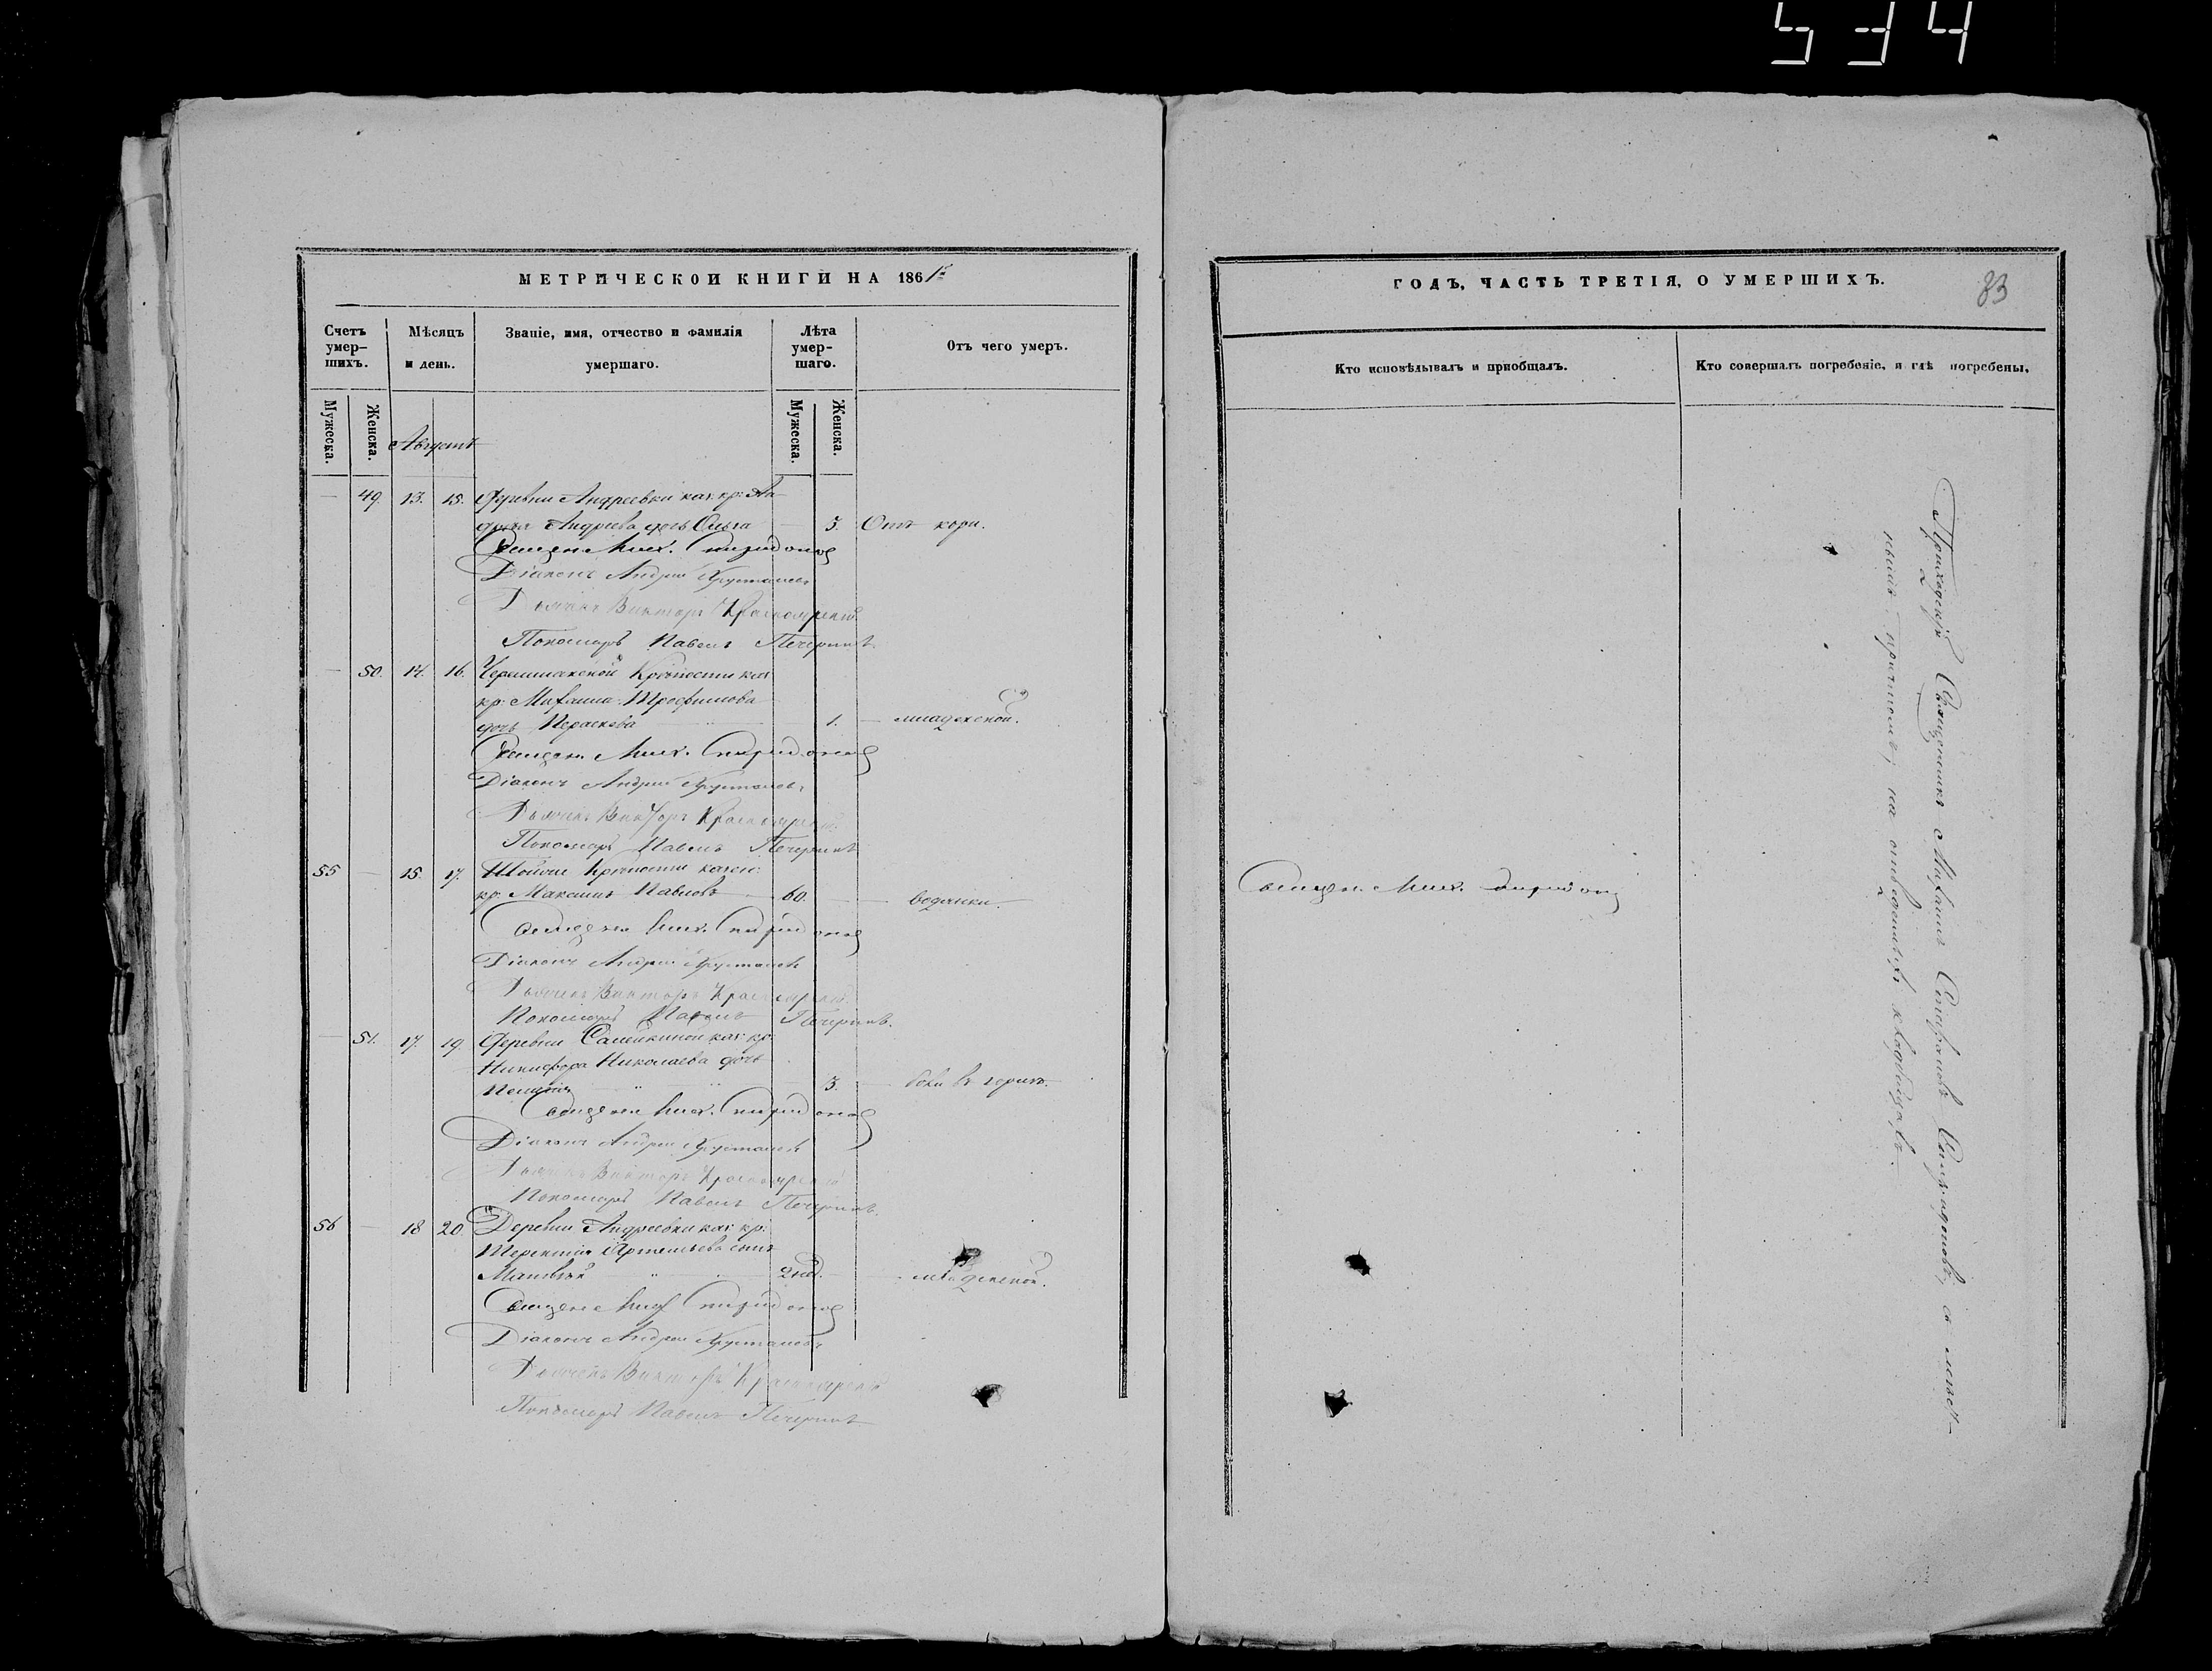 534
МЕТРИЧЕСКОЙ КНИГИ НА 1861й
Счетъ умер-
шихъ.
Мѣсяцъ
и день.
Званіе, имя, отчество и фамилія
умершаго.
Лѣта
умер-
шаго.
Отъ чего умеръ.
Мужеска.
Женска.
Августъ
Мужеска.
Женска.
49. 13. 15. Деревни Андреевки каз: кр: Ан-
дрея Андреева дочь Ольга 3. Отъ кори.
Священ. Мих. Спиридоновъ
Діаконъ Андрей Хрусталевъ
Дьячекъ Викторъ Красноярскій
Пономарь Павелъ Печеринъ
50. 14. 16. Черемшанской Крѣпости каз
кр: Михаила Трофимова
дочь Параскева 1. младенской.
Священ. Мих. Спиридоновъ
Діаконъ Андрей Хрусталевъ
Дьячекъ Викторъ Красноярскій
Пономарь Павелъ Печеринъ
55 15. 17. Крѣпости казен:
кр: Максимъ Павловъ 60. водянки.
Священ. Мих. Спиридоновъ
Діаконъ Андрей Хрусталевъ
Дьячекъ Викторъ Красноярскій
Пономарь Павелъ Печеринъ.
51. 17. 19. Деревни каз: кр:
Никифора Николаева дочь
3. боли въ горлѣ.
Священ. Мих. Спиридоновъ
Діаконъ Андрей Хрусталевъ
Дьячекъ Викторъ Красноярскій
Пономарь Павелъ Печеринъ.
56 18 20. Деревни Андреевки каз: кр:
Терентія Артемьева сынъ
Матвѣй 2 нед. младенской.
Священ. Мих. Спиридоновъ
Діаконъ Андрей Хрусталевъ
Дьячекъ Викторъ Красноярскій
Пономарь Павелъ Печеринъ
ГОДЪ, ЧАСТЬ ТРЕТІЯ, О УМЕРШИХЪ.
83
Кто исповѣдывалъ и пріобщалъ.
Кто совершалъ погребеніе, и гдѣ погребены.
Священ. Мих. Спиридоновъ
Приходскій Священникъ Михаилъ Стефановъ Спиридоновъ, съ мѣст-
нымъ причтомъ, на отведенныхъ кладбищахъ.